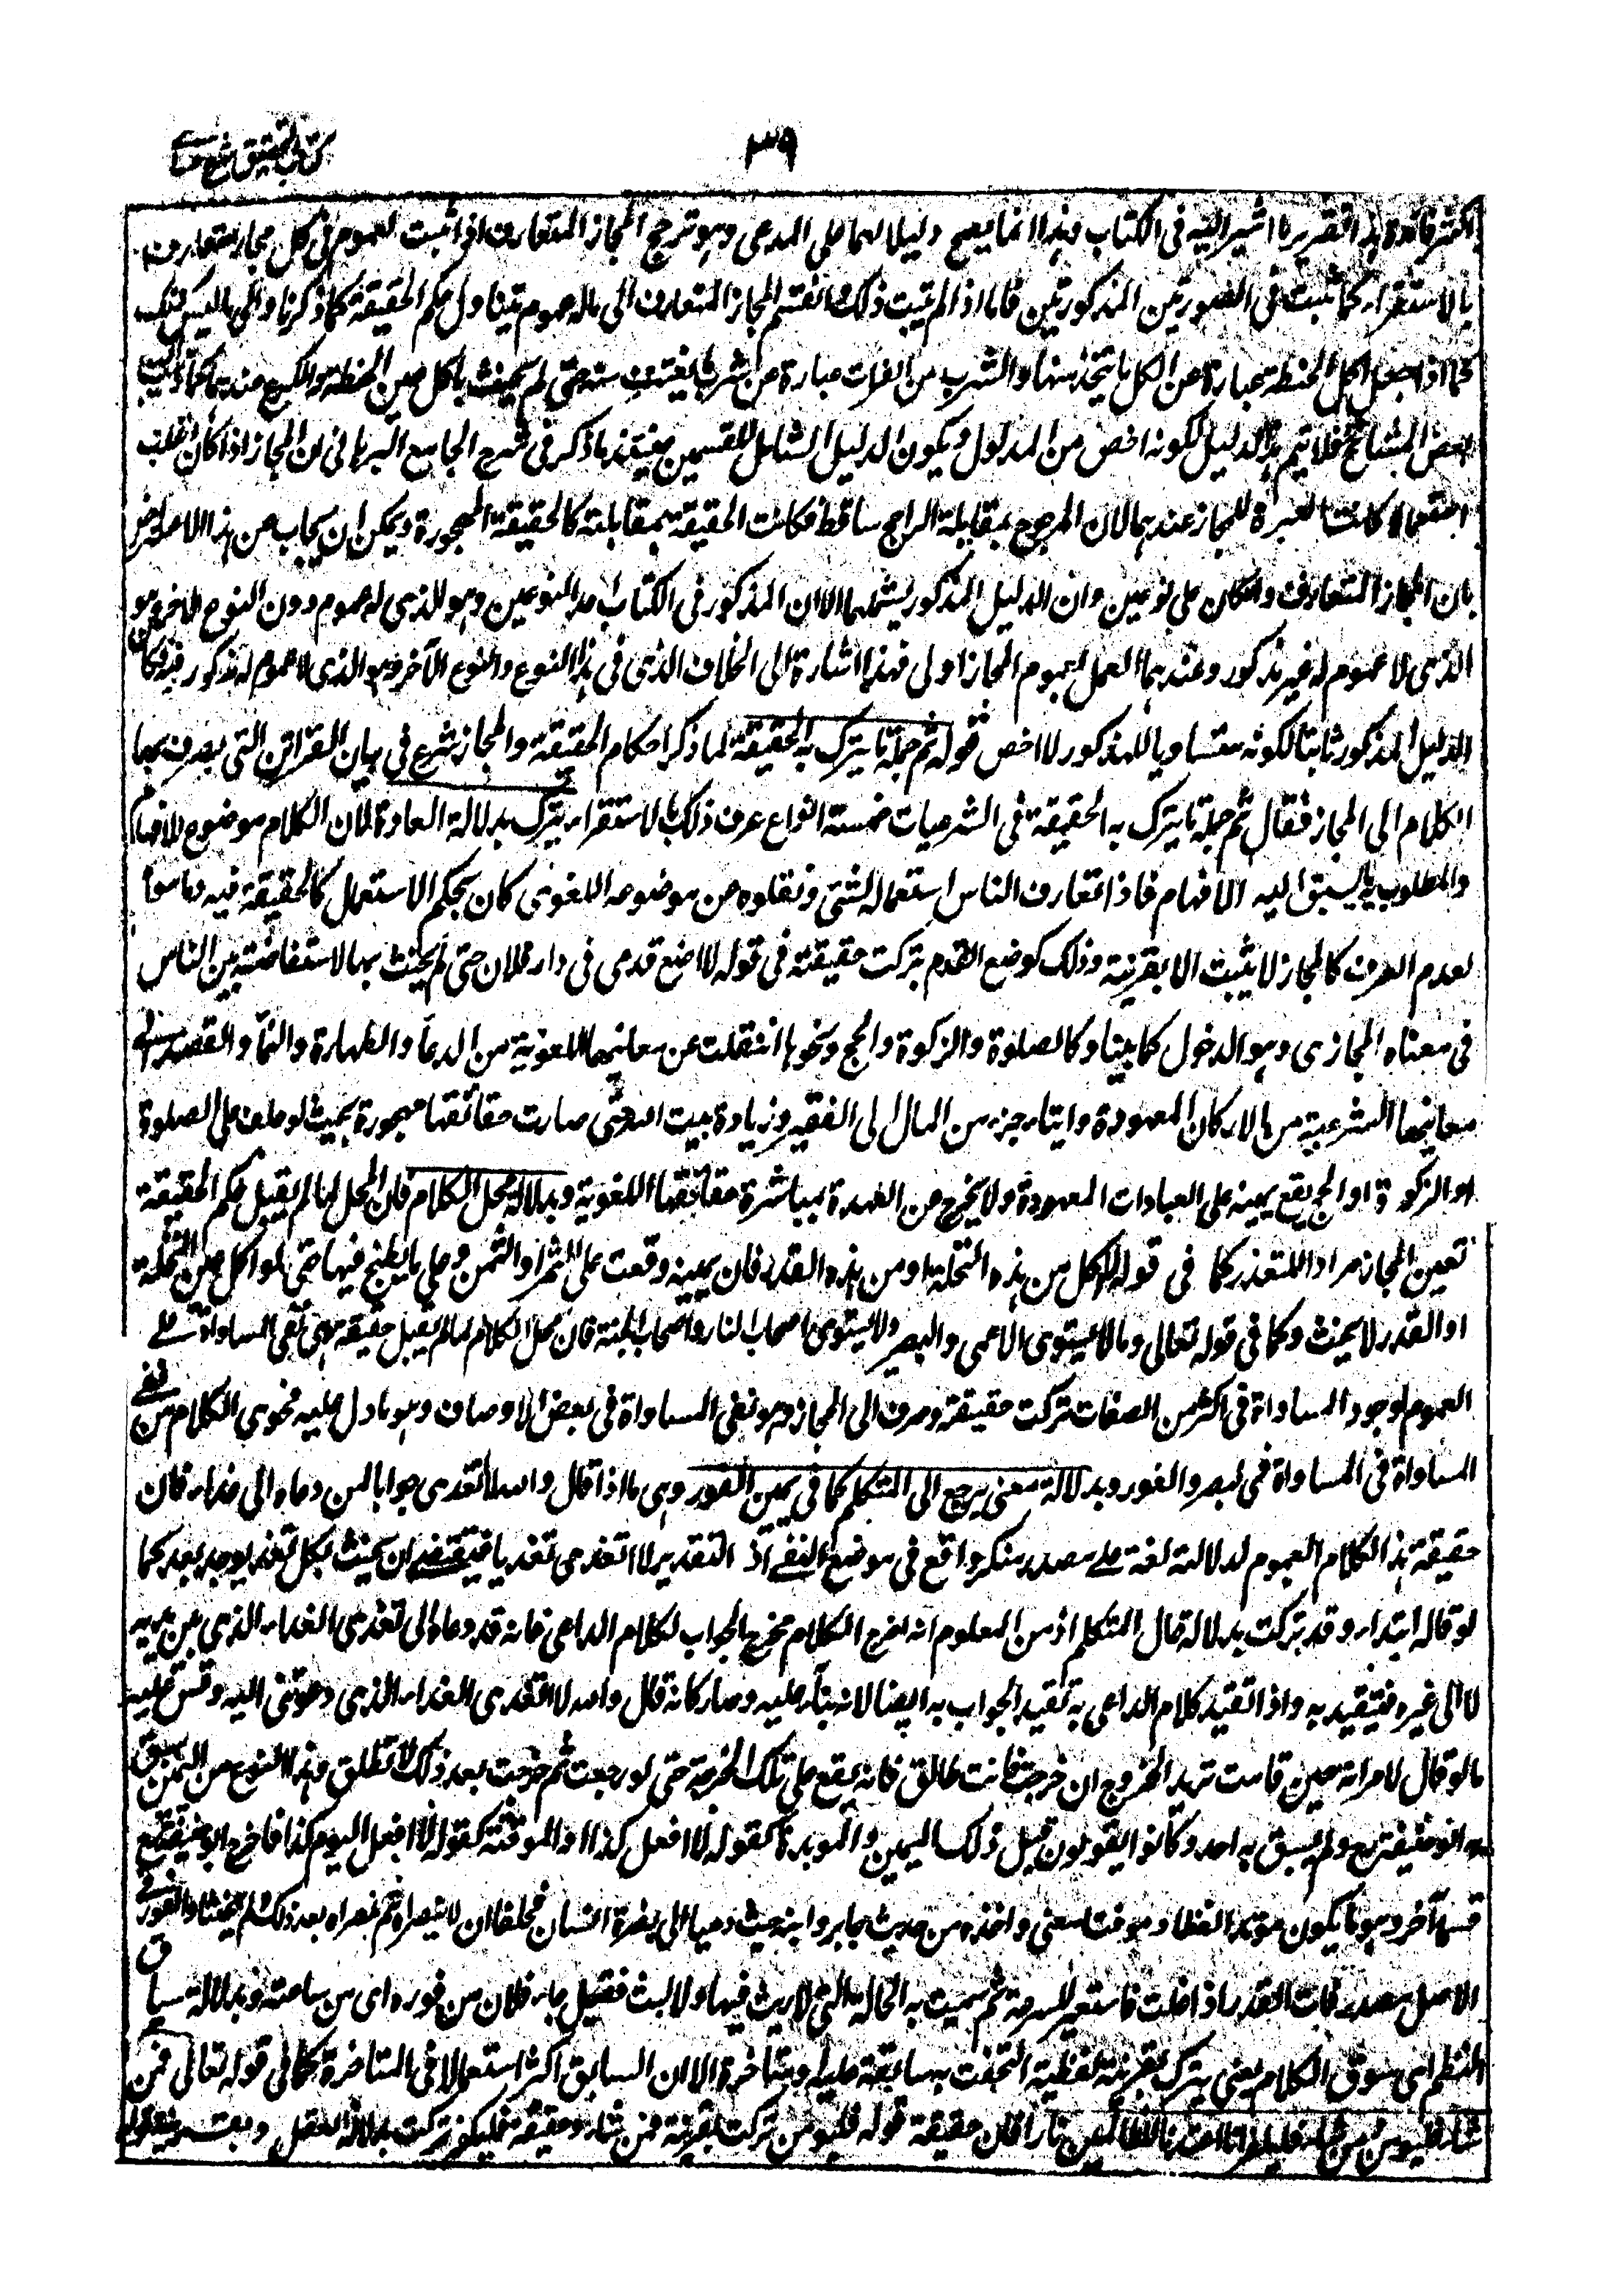 كتاب التحقيق شرح حسامي
٣٩
اكثر فائدة هذا تقرير ما اشير اليه فى الكتاب وهذا انما يصح دليلا لهما على المدعى وهو ترجح المجاز المتعارف اذا ثبت العموم فى كل مجاز متعارف
بالاستقراء كما ثبت فى الصورتين المذكورتين فاما اذا لم يثبت ذلك وانقسم المجاز المتعارف الى ما له عموم يتناول حكم الحقيقة كما ذكرنا والى ما ليس كذلك
كما اذا جعل اكل الحنطة عبارة عن اكل ما يتخذ منها والشرب من الفرات عبارة عن شرب ما يغترف منه حتى لم يحنث باكل عين الحنطة والكرع عندهما كما ذهب اليه
بعض المشائخ فلا يتم هذا الدليل لكونه اخص من المدلول ويكون الدليل الشامل للقسمين حينئذ ما ذكر فى شرح الجامع البرهانى ان المجاز اذا كان اغلب
استعمالا كانت العبرة للمجاز عندهما لان المرجوح بمقابلة الراجح ساقط فكانت الحقيقة بمقابلته كالحقيقة المهجورة ويمكن ان يجاب عن هذا الاعتراض
بان المجاز المتعارف وان كان على نوعين وان الدليل المذكور يشملهما الا ان المذكور فى الكتاب احد النوعين وهو الذى له عموم دون النوع الآخر وهو
الذى لا عموم له غير مذكور وعندهما العمل بعموم المجاز اولى فهذا اشارة الى الخلاف الذى فى هذا النوع والنوع الآخر وهو الذى لا عموم له مذكور فيه فكان
الدليل المذكور ثابتا لكونه متساويا للمذكور لا اخص قوله ثم جملة ما يترك به الحقيقة لما ذكر احكام الحقيقة والمجاز شرع فى بيان القرائن التى يصرف بها
الكلام الى المجاز فقال ثم جملة ما يترك به الحقيقة فى الشرعيات خمسة انواع عرف ذلك بالاستقراء يترك بدلالة العادة لان الكلام موضوع للافهام
والمطلوب به ما يسبق اليه الافهام فاذا تعارف الناس استعماله لشئ ونقلوه عن موضوعه اللغوى كان بحكم الاستعمال كالحقيقة فيه وما سواه
لعدم العرف كالمجاز لا يثبت الا بقرينة وذلك كوضع القدم تركت حقيقته فى قوله لا اضع قدمى فى دار فلان حتى لم يحنث بها لاستفاضته بين الناس
فى معناه المجازى وهو الدخول كما بينا وكالصلوة والزكوة والحج ونحوها انتقلت عن معانيها اللغوية من الدعاء والطهارة والنماء والقصد الى
معانيها الشرعية من الاركان المعهودة وايتاء جزء من المال الى الفقير وزيادة بيت الله حتى صارت حقائقها مهجورة بحيث لو حلف على الصلوة
او الزكوة او الحج يقع يمينه على العبادات المعهودة ولا يخرج عن العهدة بمباشرة حقائقها اللغوية وبدلالة محل الكلام فان المحل لما لم يقبل حكم الحقيقة
تعين المجاز مرادا للتعذر كما فى قوله لا ياكل من هذه النخلة او من هذه القدر فان يمينه وقعت على الثمر او الثمن وعلى ما يطبخ فيها حتى لو اكل عين النخلة
او القدر لا يحنث وكما فى قوله تعالى وما لا يستوى الاعمى والبصير ولا يستوى اصحاب النار واصحاب الجنة فان محل الكلام لما لم يقبل حقيقته وهى نفى المساواة على
العموم لوجود المساواة فى اكثر من الصفات تركت حقيقته وصرف الى المجاز وهو نفى المساواة فى بعض الاوصاف وهو ما دل عليه فحوى الكلام من نفى
المساواة فى المساواة فى البصر والفوز وبدلالة معنى يرجع الى المتكلم كما فى يمين الفور وهى ما اذا قال والله لا اتغدى جوابا لمن دعاه الى غداء فان
حقيقة هذا الكلام العموم لدلالته لغة على مصدر منكر واقع فى موضع النفى اذ التقدير لا اتغدى تغديا فيقتضى ان يحنث بكل تغد يوجد بعد كما
لو قاله ابتداء وقد تركت بدلالة حال المتكلم اذ من المعلوم انه اخرج الكلام مخرج الجواب لكلام الداعى فانه قد دعاه الى تغدى الغداء الذى بين يديه
لا الى غيره فيتقيد به واذا تقيد كلام الداعى به تقيد الجواب به ايضا لانه بناء عليه وصار كانه قال والله لا اتغدى الغداء الذى دعوتنى اليه وقس عليه
ما لو قال لامراته حين قامت تريد الخروج ان خرجت فانت طالق فانه يقع على تلك الخرجة حتى لو رجعت ثم خرجت بعد ذلك لا تطلق وهذا النوع من اليمين سبق
به ابو حنيفة رح ولم يسبق به احد وكانوا يقولون قبل ذلك اليمين المؤبدة كقوله لا افعل كذا او الموقتة كقوله لا افعل اليوم كذا فاخرج ابو حنيفة رح
قسما آخر وهو ما يكون مؤبدا لفظا وموقتا معنى واخذه من حديث جابر وابنه حيث دعيا الى نصرة انسان فحلفا ان لا ينصراه ثم نصراه بعد ذلك ولم يحنثا والفور فى
الاصل مصدر فارت القدر اذا غلت فاستعير للسرعة ثم سميت به الحالة التى لا ريث فيها ولا لبث فقيل جاء فلان من فوره اى من ساعته وبدلالة سياق
النظم اى سوق الكلام يعنى يترك بقرينة لفظية التحقت به سابقة عليه او متاخرة الا ان السابق اكثر استعمالا فى المتاخرة كما فى قوله تعالى فمن
شاء فليؤمن ومن شاء فليكفر انا اعتدنا للظالمين نارا فان حقيقة قوله فليؤمن تركت بقرينة فمن شاء وحقيقة فليكفر تركت بدلالة العقل وبقوله